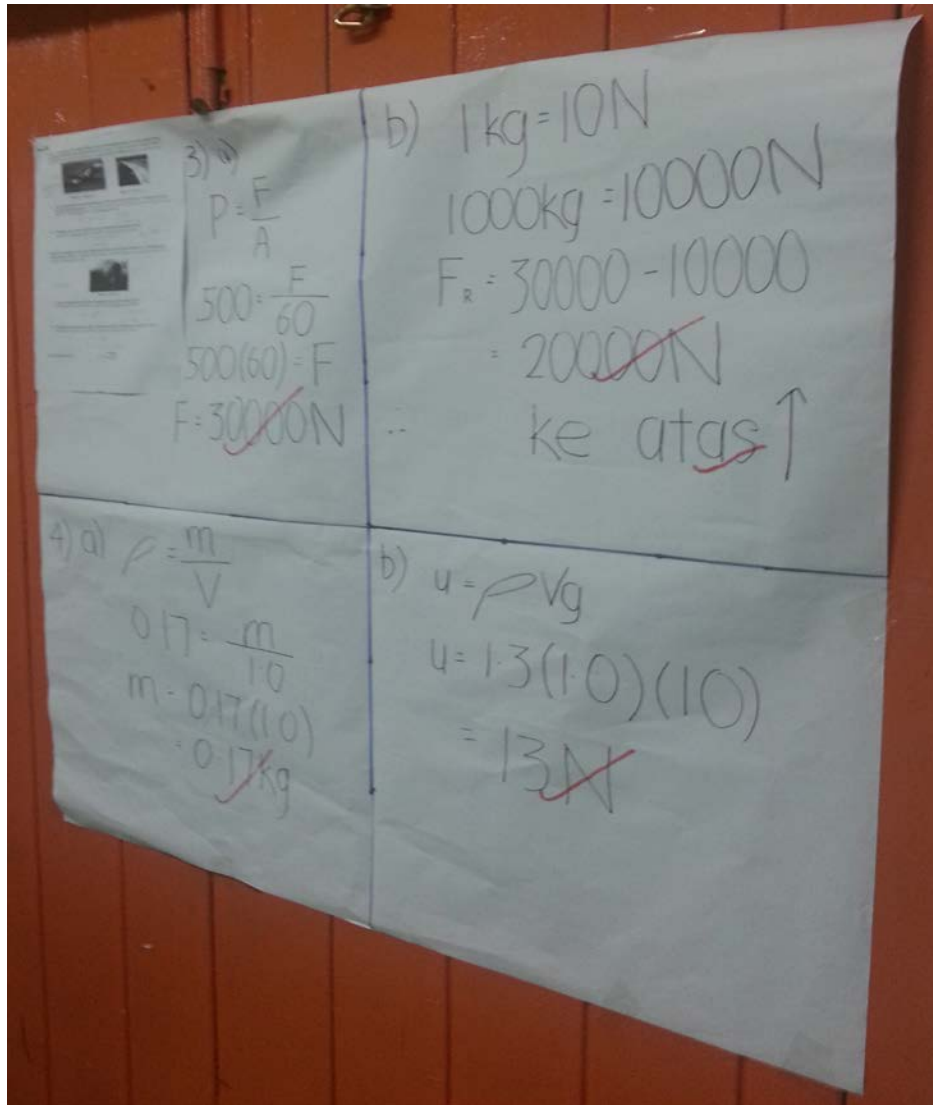 3) a)
P = F/A
500 = F/60
500(60) = F
F = 30000N
b) 1kg = 10N
1000kg = 10000N
F_R = 30000 - 10000
= 20000N
∴ ke atas ↑
4) a) ρ = m/V
0.17 = m/1.0
m = 0.17(1.0)
= 0.17kg
b) u = ρVg
u = 1.3(1.0)(10)
= 13N